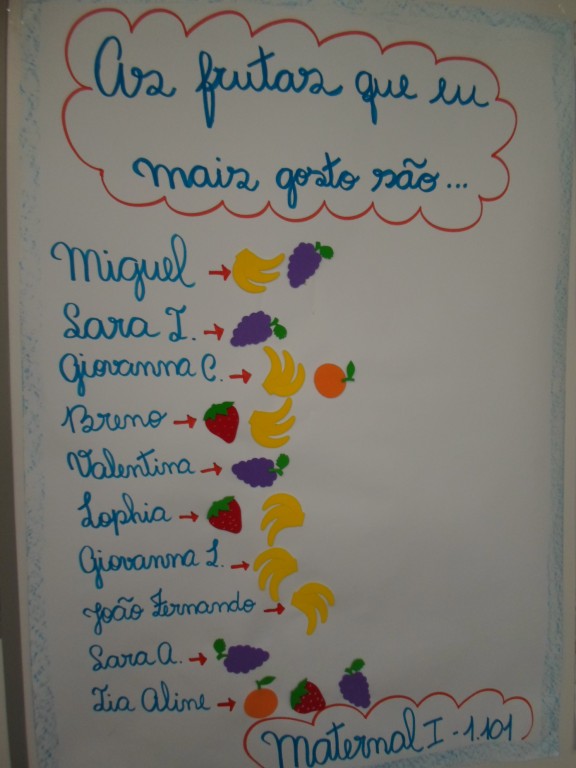 As frutas que eu
mais gosto são...
Miguel →
Sara I. →
Giovanna C. →
Breno →
Valentina →
Sophia →
Giovanna L. →
João Fernando →
Sara A. →
Tia Aline →
Maternal I - 1.101